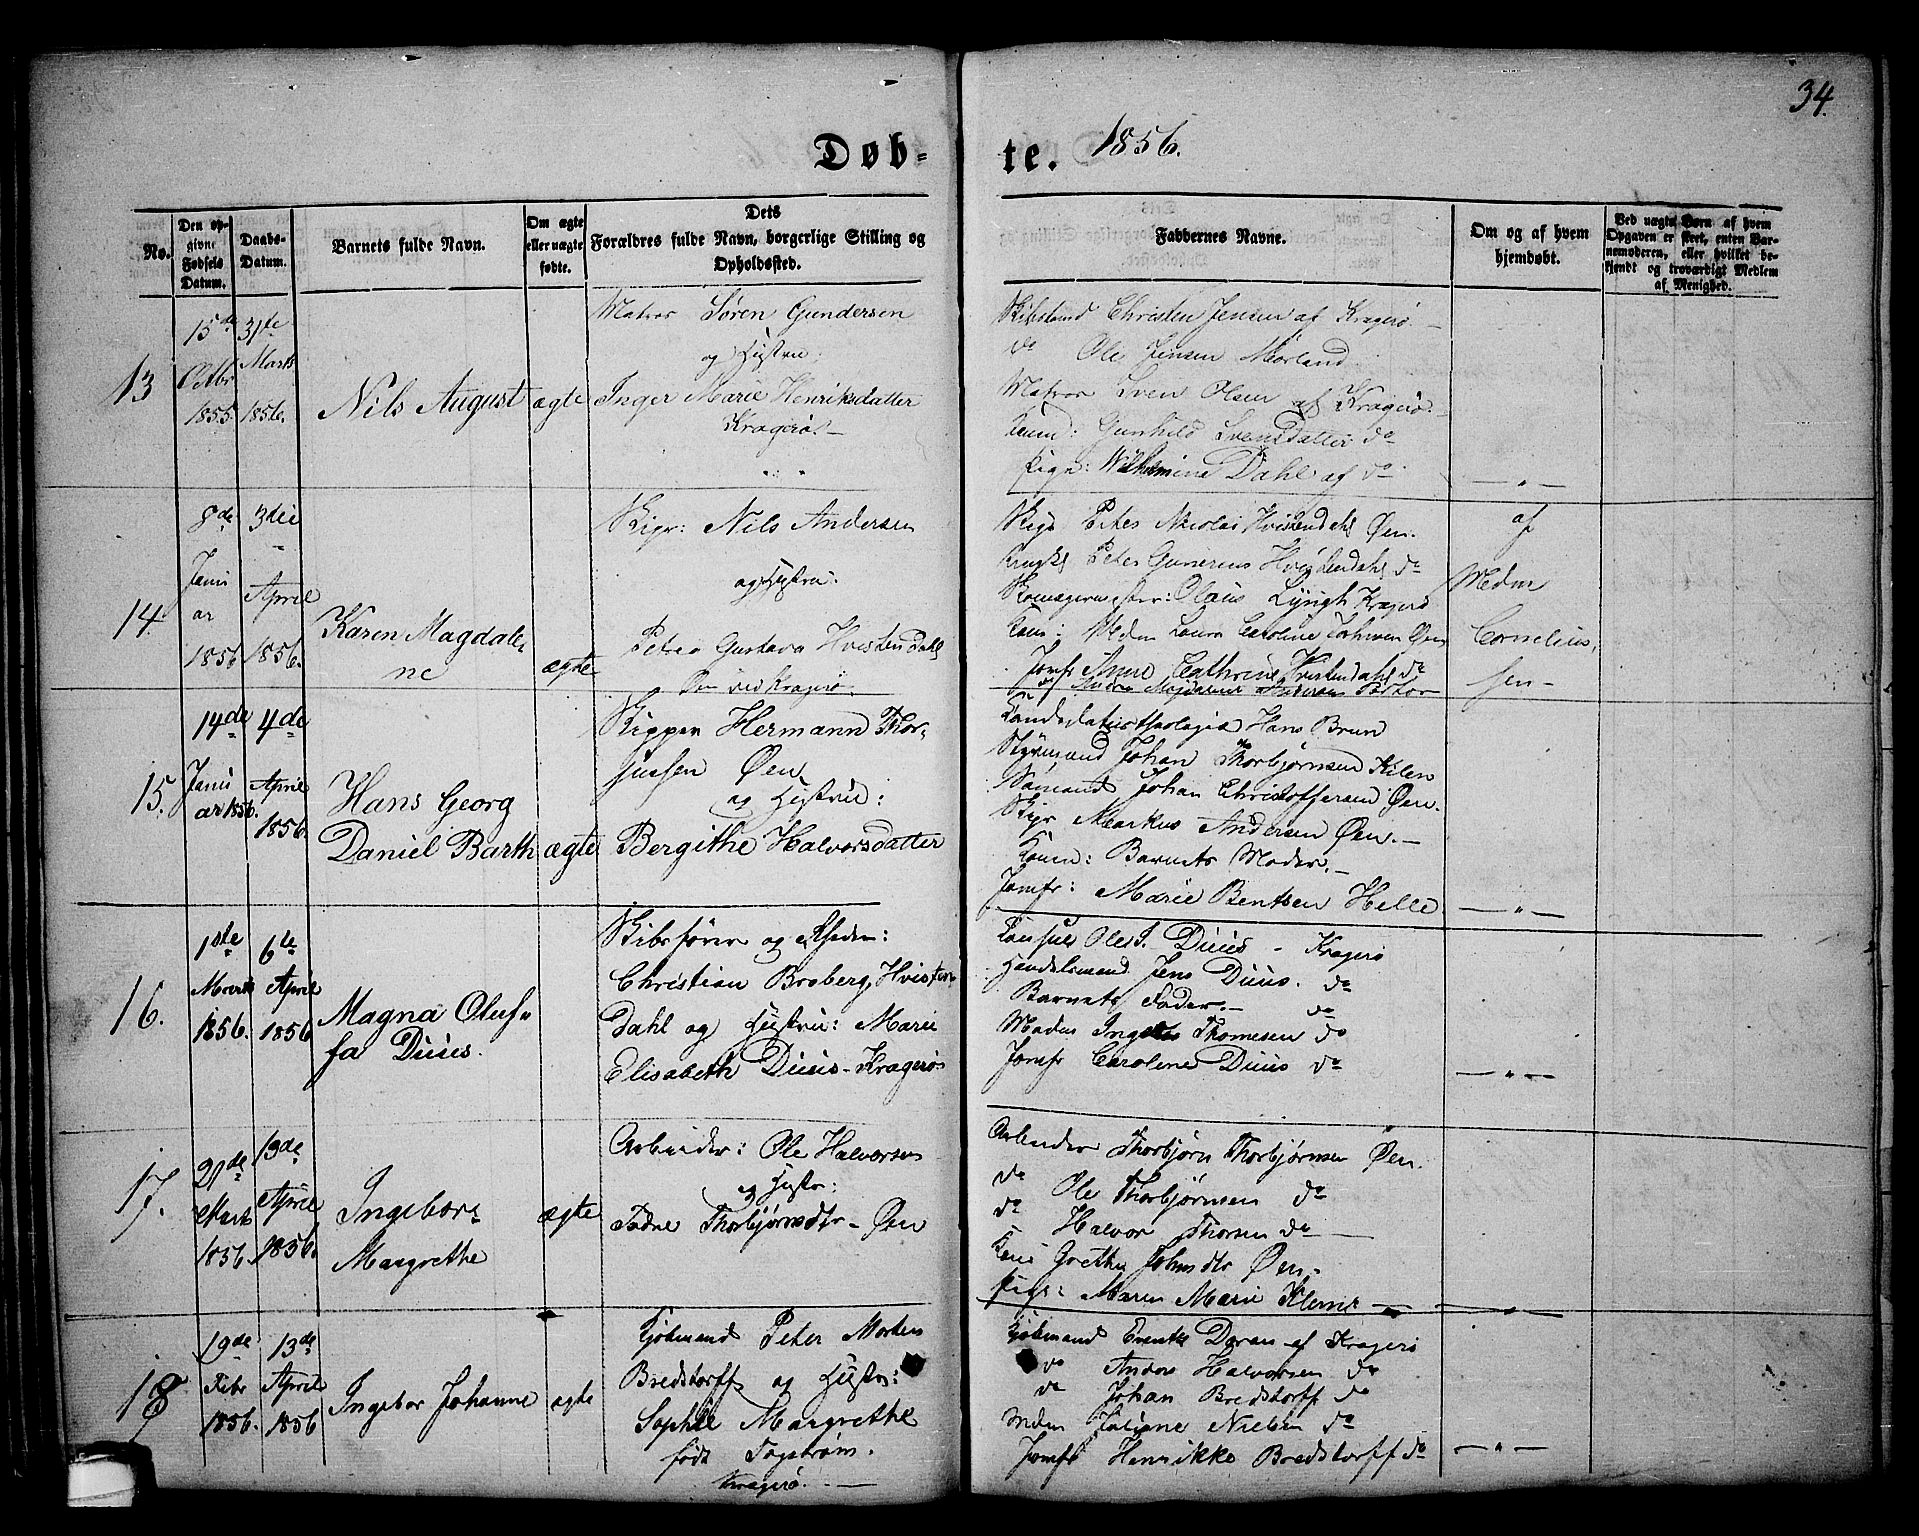 34.
Døb-
te. 1856.
No.
Den op-
givne
Fødsels
Datum.
Daabs-
Datum.
Barnets fulde Navn.
Om ægte
eller uægte
fødte.
Dets
Forældres fulde Navn, borgerlige Stilling og
Opholdssted.
Faddernes Navne.
Om og af hvem
hjemdøbt.
Ved uægte Børn af hvem
Opgaven er skeet, enten Bar-
nemoderen, eller hvilket be-
kjendt og troværdigt Medlem
af Menighed.
13
15de
Octbr
1855.
31te
Marts
1856.
Nils August
ægte
Matros Søren Gundersen
og Hustru:
Inger Marie Henriksdatter
Kragerø.
Christen Jensen af Kragerø.
do Ole Jensen Morland
Matros Sven Olsen af Kragerø.
Gunhild Svensdatter do
Pige: Wilhelmine Dahl af do
14.
8de
Janu
ar
1856
3die
April
1856.
Karen Magdale,
ne
ægte
Skipr: Nils Andersen
og Hustru:
Petrea Gustava Hvistendahl
Øen ved Kragerø.
Peter Nicolai Hvistendahl Øen.
Peter Gunerius Hvistendahl do
Olaus Lyngh Kragerø
Kone: Madm Laura Caroline Øen
Jomfr Anne Cathrine Hvistendahl do
af
Madm
Cornelius,
sen
15.
14de
Janu
ar 1856.
4de
April
1856
Hans Georg
Daniel Barth
ægte
Skipper Hermann Thor-
Øen
og Hustru:
Bergithe Halvorsdatter
Hans Brun
Styrmand Johan Thorbjørnsen Kilen
Sømand Johan Christoffersen Øen.
Skipr Markus Andersen Øen.
Konen: Barnets Moder.
Jomfr: Marie Bentsen Helle
16.
1ste
Marts
1856.
6te
April
1856
Magna Oluf-
fa Duus.
Skibsfører og Rheder:
Christian Broberg Hvisten-
dahl og Hustru: Marie
Elisabeth Duus - Kragerø
Consul Ole J. Duus - Kragerø
Handelsmand Jens Duus. do
Barnets Fader. do
Madm Thomesen do
Jomfr Caroline Duus do
17.
21de
Marts
1856.
13de
April
1856.
Ingebor-
Margrethe
ægte
Arbeider: Ole Halvorsen
og Hustr:
Thorbjørnsdtr - Øen
Arbeider Thorbjørn Thorbjørnsen Øen.
do Ole Thorbjørnsen do
do Halvor Thorsen do
Kone Grethe Johnsdtr Øen
Pige: Maren Marie
18
19de
Febr
1856.
13de
April
1856
Ingebor Johanne
ægte
Kjøbmand Peter Morten
Bredstorff og Hustr:
Sophie Margrethe
født Fogstrøm.
Kragerø.
Kjøbmand af Kragerø
do Halvorsen do
do Johan Bredstorff do
Mdm Nielsen do
Jomfr Henrikke Bredstorff do